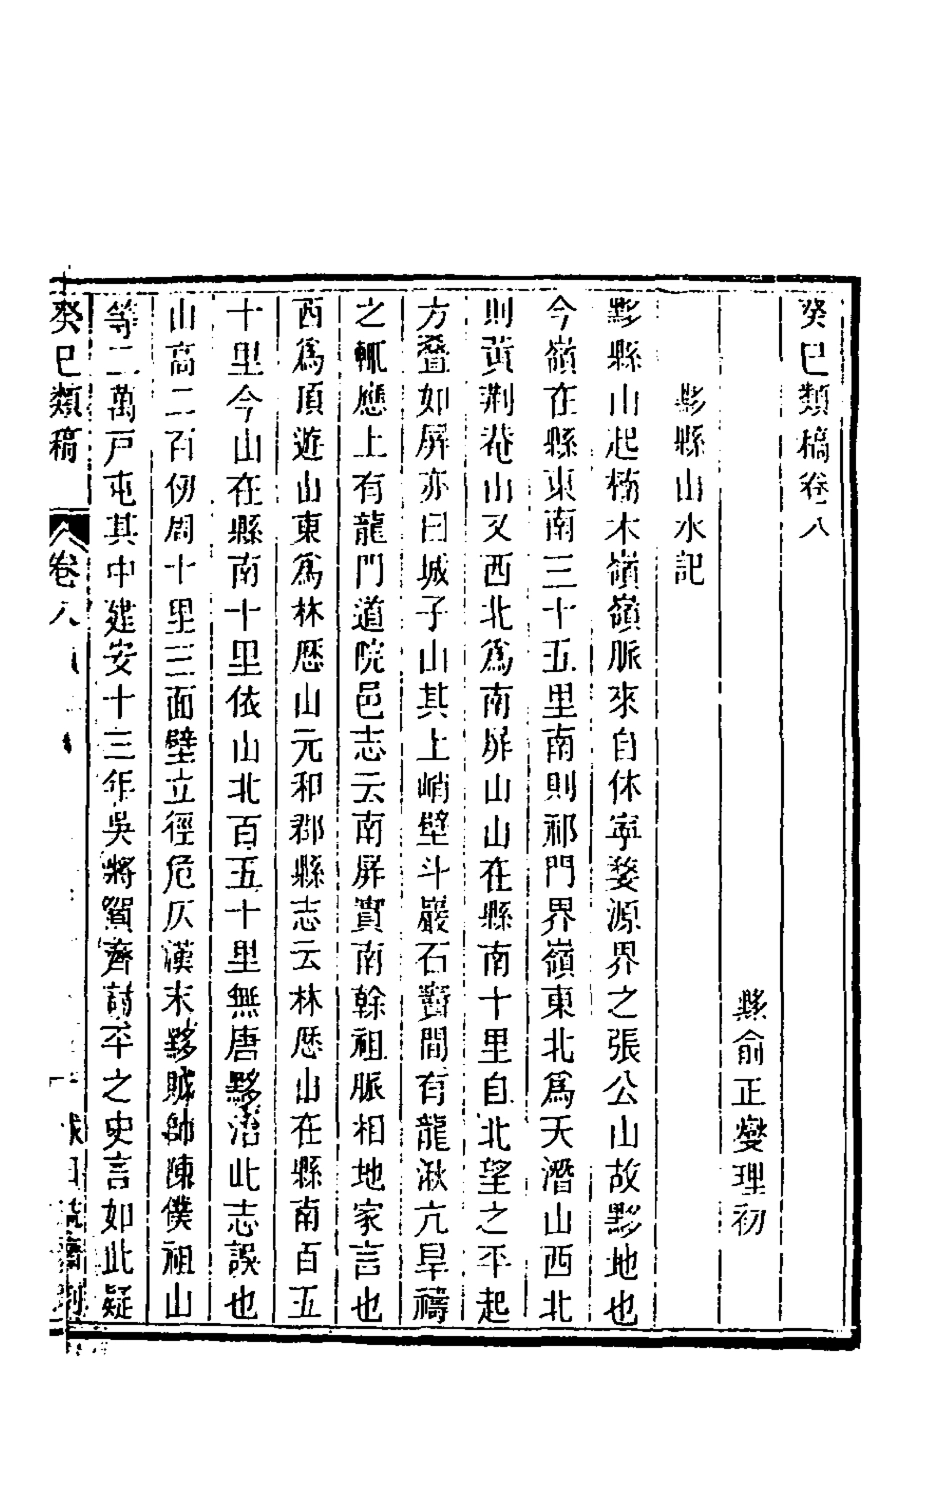 癸巳類稿卷八
黟俞正燮理初
黟縣山水記
黟縣山起楠木嶺嶺脈來自休寧婺源界之張公山故黟地也
今嶺在縣東南三十五里南則祁門界嶺東北爲天潛山西北
則黃荆菴山又西北爲南屏山山在縣南十里自北望之平起
方疊如屏亦曰城子山其上峭壁斗巖石竇間有龍湫亢旱禱
之輒應上有龍門道院邑志云南屏實南幹祖脈相地家言也
西爲頂遊山東爲林歷山元和郡縣志云林歷山在縣南百五
十里今山在縣南十里依山北百五十里無唐黟治此志誤也
山高二百仞周十里三面壁立徑危仄漢末黟賊帥陳僕祖山
等二萬戸屯其中建安十三年吳將賀齊討平之史言如此疑
癸巳類稿
卷八